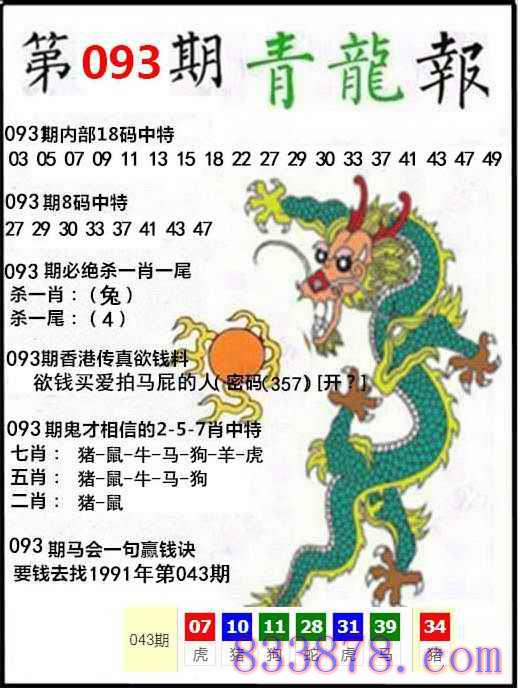 第093期青龍報
093期内部18码中特
03 05 07 09 11 13 15 18 22 27 29 30 33 37 41 43 47 49
093期8码中特
27 29 30 33 37 41 43 47
093 期必绝杀一肖一尾
杀一肖：（兔）
杀一尾：（4）
093期香港传真欲钱料
欲钱买爱拍马屁的人( 密码(357) [开？]
093期鬼才相信的2-5-7肖中特
七肖： 猪-鼠-牛-马-狗-羊-虎
五肖： 猪-鼠-牛-马-狗
二肖： 猪-鼠
093期马会一句赢钱诀
要钱去找1991年第043期
043期 07 10 11 28 31 39 34
虎 猪 狗 蛇 虎 马 猪
833878.com